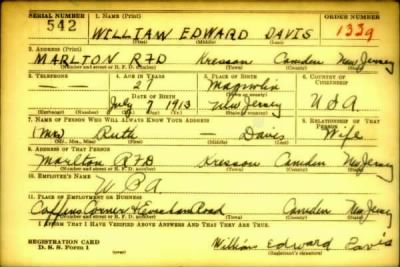 SERIAL NUMBER 1. NAME (Print) ORDER NUMBER
542 WILLIAM EDWARD DAVIS 1339
(First) (Middle) (Last)
2. ADDRESS (Print)
MARLTON RFD Kresson Camden New Jersey
(Number and street or R. F. D. number) (Town) (County) (State)
3. TELEPHONE 4. AGE IN YEARS 5. PLACE OF BIRTH 6. COUNTRY OF CITIZENSHIP
— — 27 Magnolia
DATE OF BIRTH (Town or county)
July 7 1913 New Jersey U S A
(Exchange) (Number) (Mo.) (Day) (Yr.) (State or country)
7. NAME OF PERSON WHO WILL ALWAYS KNOW YOUR ADDRESS 8. RELATIONSHIP OF THAT PERSON
(Mrs) Ruth — Davis Wife
(Mr., Mrs., Miss) (First) (Middle) (Last)
9. ADDRESS OF THAT PERSON
Marlton RFD Kresson Camden New Jersey
(Number and street or R. F. D. number) (Town) (County) (State)
10. EMPLOYER'S NAME
W.P.A.
11. PLACE OF EMPLOYMENT OR BUSINESS
Coffins Corner & Evesham Road Camden New Jersey
(Number and street or R. F. D. number) (Town) (County) (State)
I AFFIRM THAT I HAVE VERIFIED ABOVE ANSWERS AND THAT THEY ARE TRUE.
REGISTRATION CARD William Edward Davis
D. S. S. Form 1 (Registrant's signature)